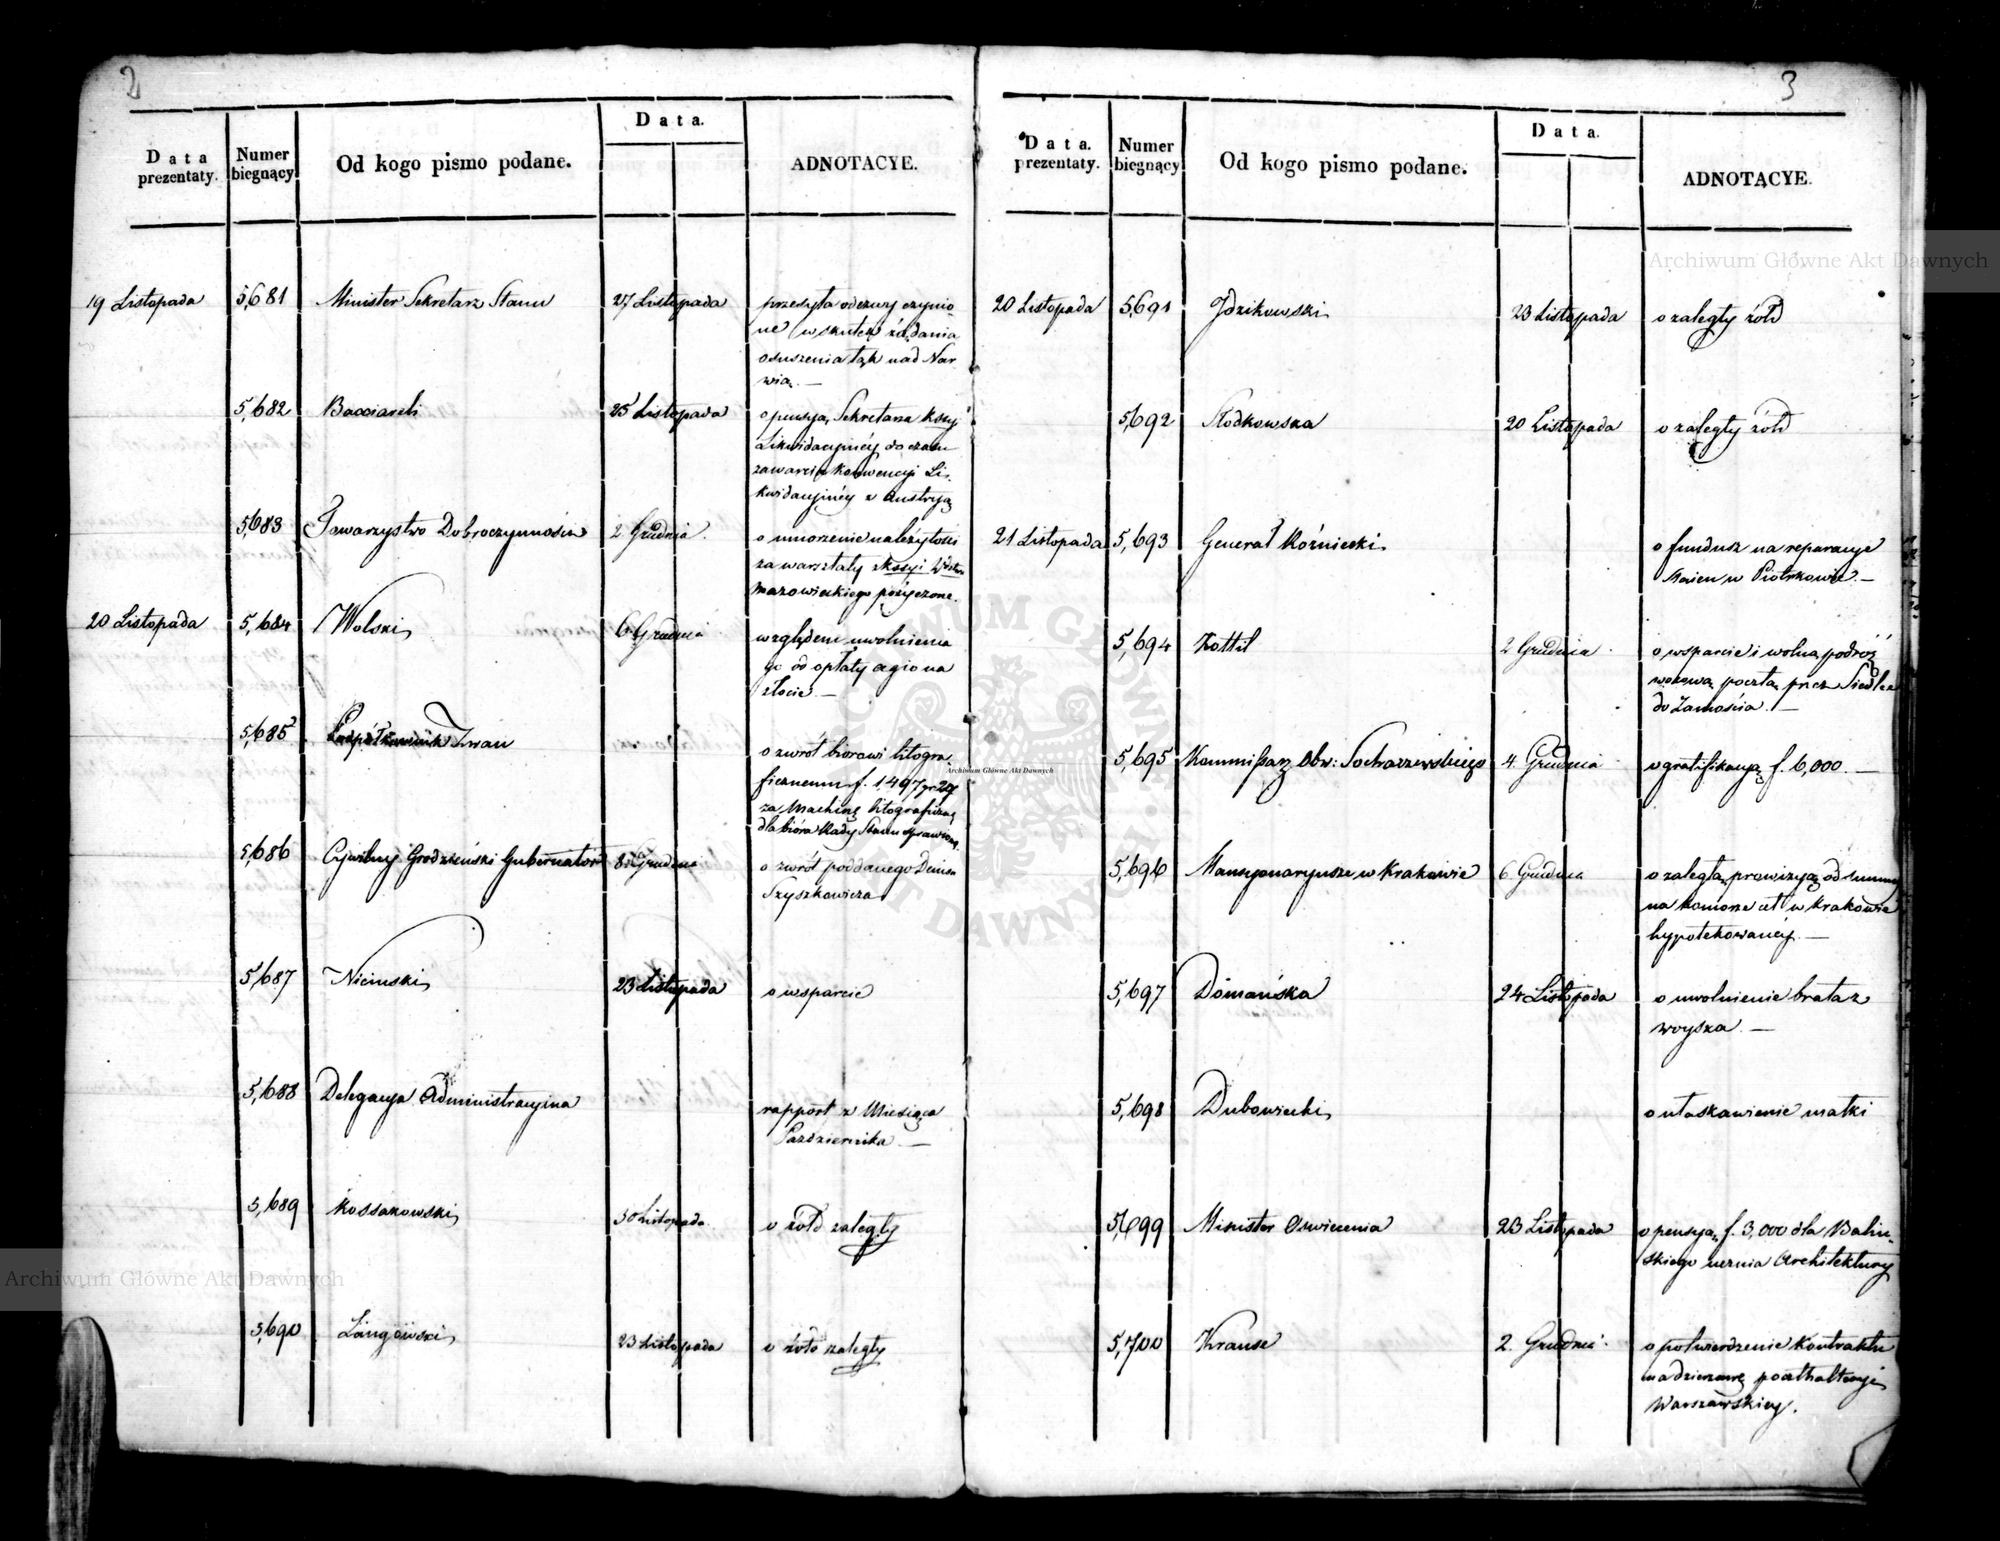 2
Data prezentaty.
Numer biegnący
Od kogo pismo podane.
Data.
ADNOTACYE.
19 Listopada 5,681 Minister Sekretarz Stanu 27 Listopada przesyła odezwy czynio-
ne w skutek żądania
osuszenia łąk nad Nar
wią. —
5,682 Bacciareli 25 Listopada o pensyą Sekretarza Kssyi
Likwidacyinéy do czasu
zawarcia Konwencyi Li-
kwidacyinéy z Austryą
5,683 Towarzystwo Dobroczynności 2 Grudnia. o umorzenie należytości
za warsztaty z Kssyi Wództwa
Mazowieckiego pożyczone.
20 Listopada 5,684 Wolski 6 Grudnia względem uwolnienia
go od opłaty agio na
złocie. —
5,685 Podpółkownik Zwan o zwrót biorowi litogra
ficznemu f. 1497 gr 27
za Machinę litograficzną
dla bióra Rady Stanu sprawioną.
5,686 Cywilny Grodzieński Gubernator 8 Grudnia o zwrót poddanego Denisa
Szyszkowicza
5,687 Niciński 23 Listopada o wsparcie
5,688 Delegacya Administracyina rapport z Miesiąca
Października —
5,689 Kossakowski 30 Listopada o żółd zaległy
5,690 Langowski 23 Listopada o żółd zaległy
3
Data. prezentaty.
Numer biegnący
Od kogo pismo podane.
Data.
ADNOTACYE.
20 Listopada 5,691 Idzikowski 23 Listopada o zaległy żółd
5,692 Słodkowska 20 Listopada o zaległy żółd
21 Listopada 5,693 Generał Rożniecki o fundusz na reparacye
stajen w Piotrkowie. —
5,694 Kottil 2 Grudnia. o wsparcie i wolną podróż
wozową pocztą przez Siedlce
do Zamościa. —
5,695 Kommissarz Obw: Sochaczewskiego 4. Grudnia o gratifikacyą f. 6,000. —
5,696 Mansyonaryusze w Krakowie 6 Grudnia o zaległą prowizyą od summy
na Komorze ceł w Krakowie
hypotekowaney. —
5,697 Domańska 24 Listopada o uwolnienie brata z
woyska. —
5,698 Dubowiecki o ułaskawienie matki
5,699 Minister Oswiecenia 23 Listopada o pensyą f. 3,000 dla Baliń-
skiego ucznia Architektury
5,700 Krause 2. Grudnia. o potwierdzenie Kontraktu
na dzierzawę poczthalteryi
Warszawskiey.
Archiwum Główne Akt Dawnych
Archiwum Główne Akt Dawnych
Archiwum Główne Akt Dawnych